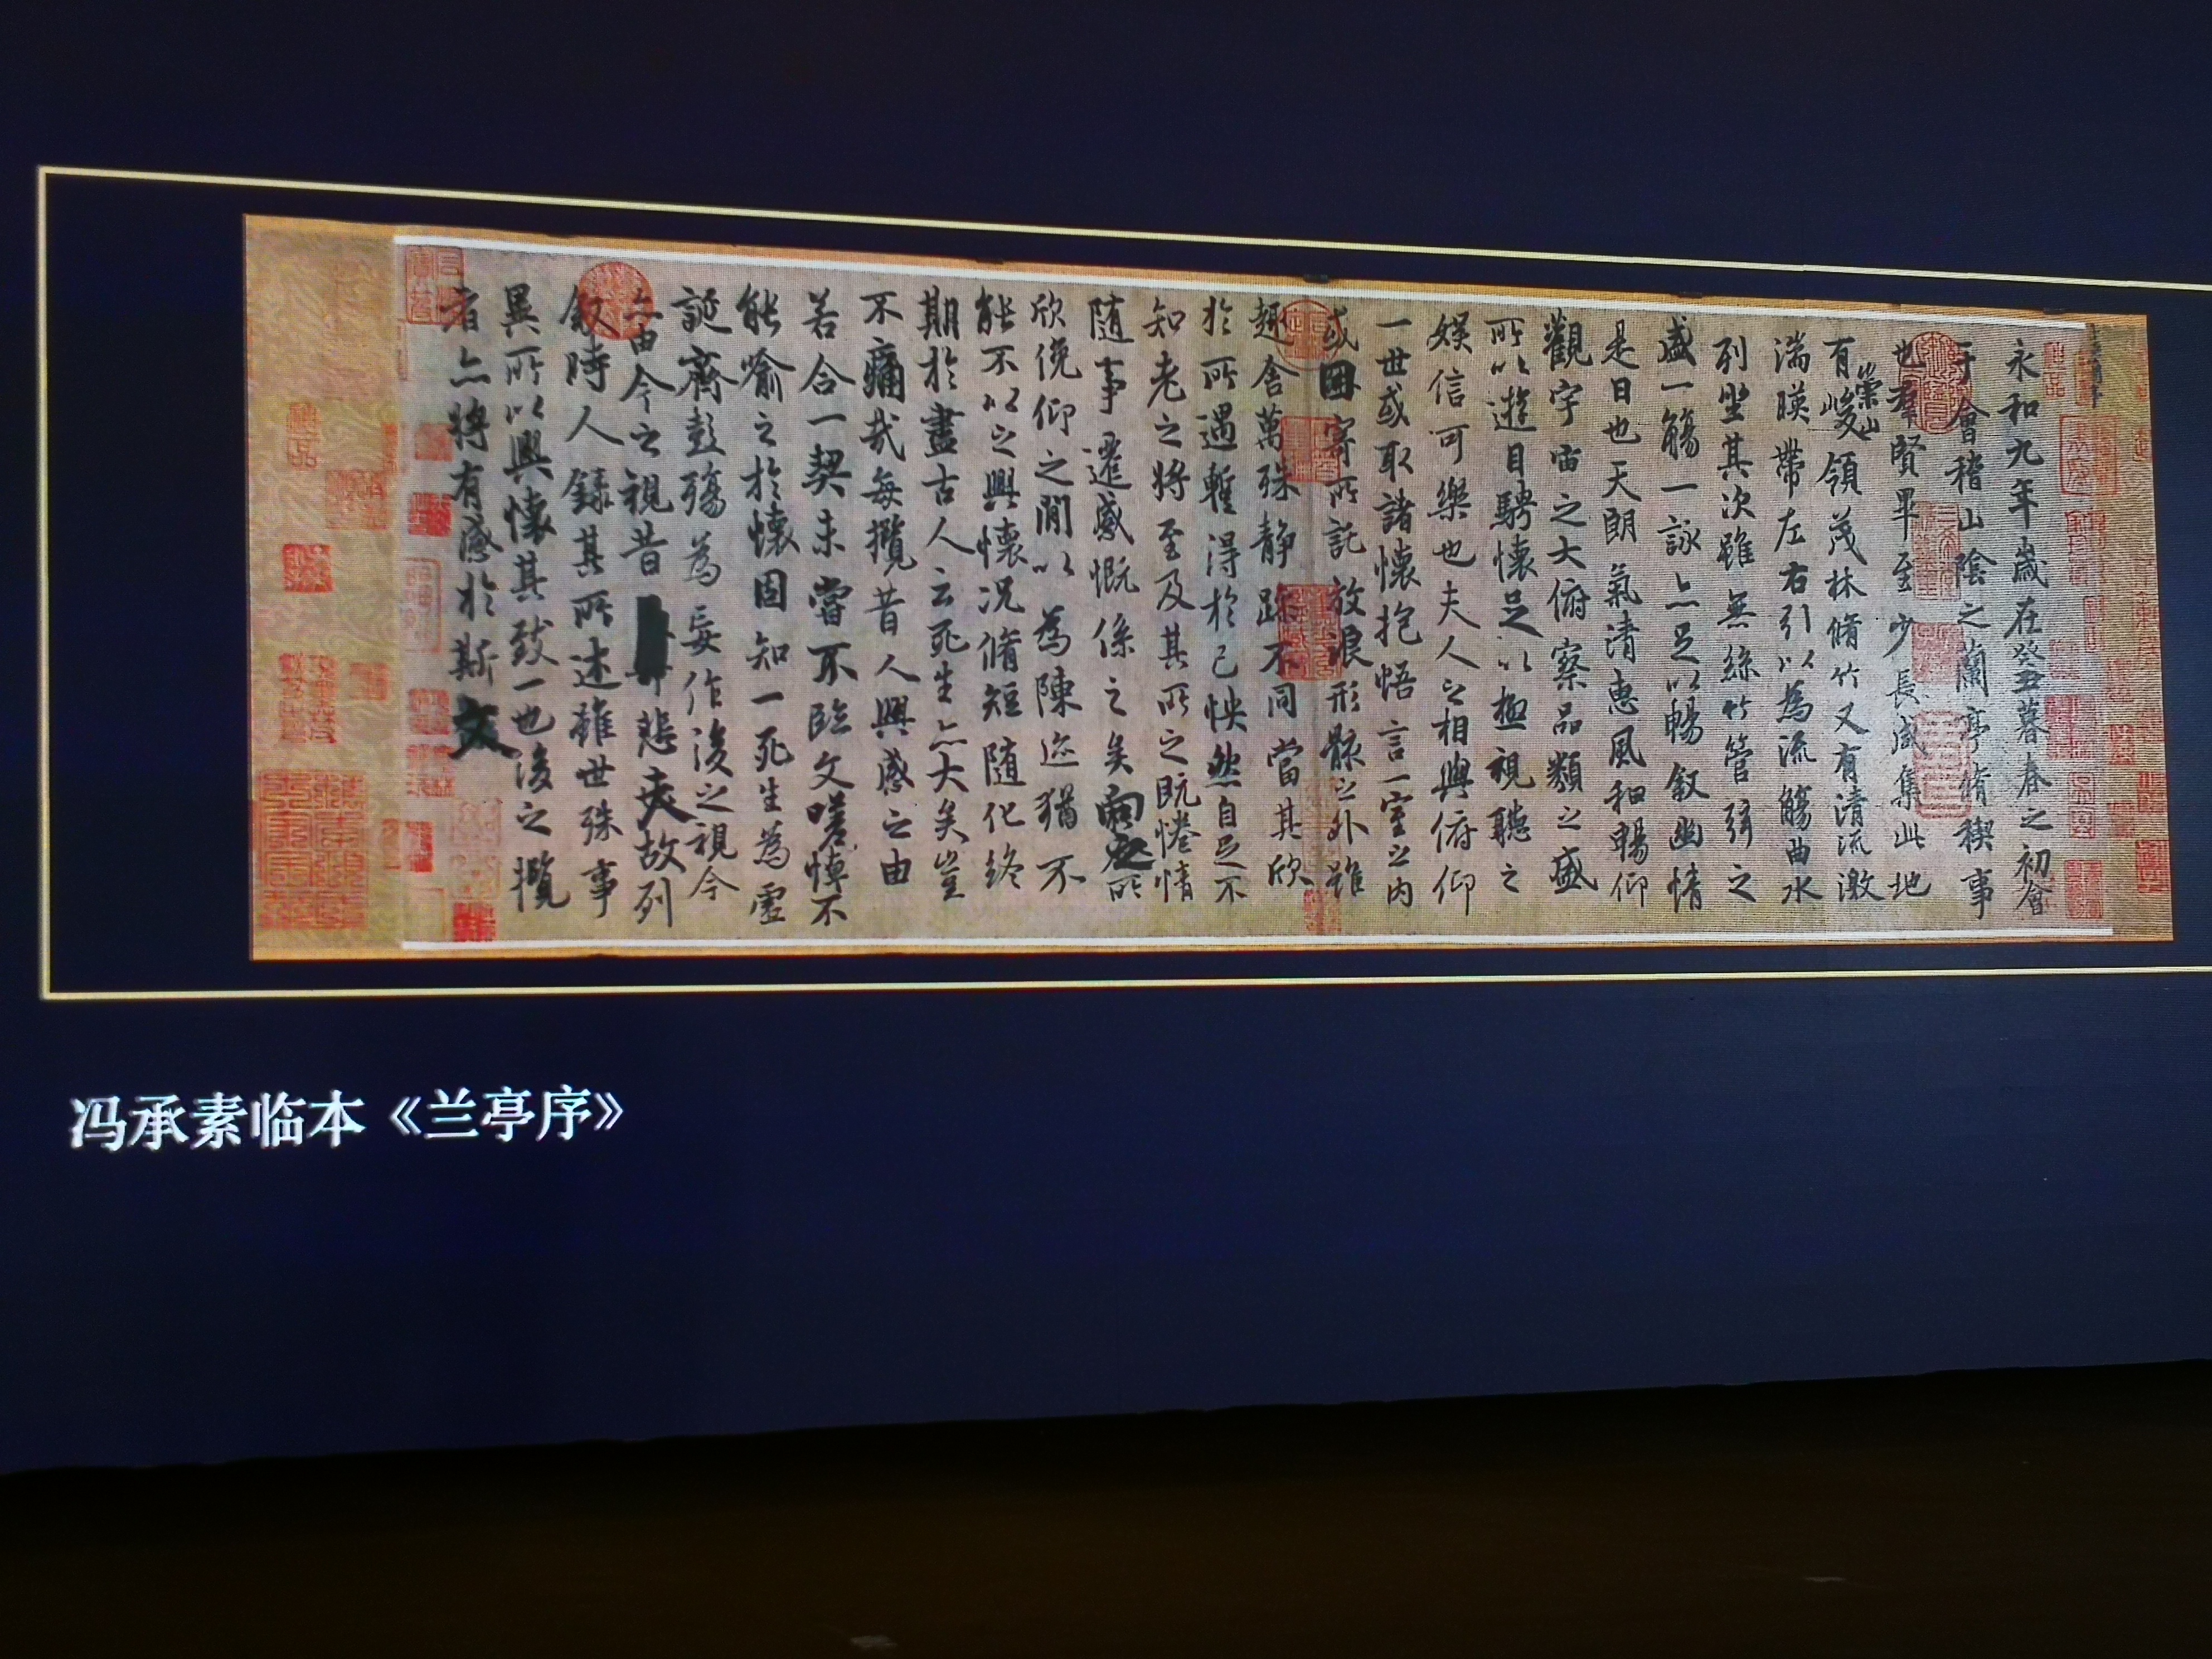 永和九年歲在癸丑暮春之初會
于會稽山陰之蘭亭脩稧事
也羣賢畢至少長咸集此地
有崇山峻領茂林脩竹又有清流激
湍暎帶左右引以為流觴曲水
列坐其次雖無絲竹管弦之
盛一觴一詠亦足以暢叙幽情
是日也天朗氣清惠風和暢仰
觀宇宙之大俯察品類之盛
所以遊目騁懷足以極視聽之
娛信可樂也夫人之相與俯仰
一世或取諸懷抱悟言一室之內
或因寄所託放浪形骸之外雖
趣舍萬殊静躁不同當其欣
於所遇蹔得於己怏然自足不
知老之將至及其所之既惓情
隨事遷感慨係之矣向之所
欣俛仰之閒以為陳迹猶不
能不以之興懷況脩短隨化終
期於盡古人云死生亦大矣豈
不痛哉每攬昔人興感之由
若合一契未嘗不臨文嗟悼不
能喻之於懷固知一死生為虛
誕齊彭殤為妄作後之視今
亦由今之視昔悲夫故列
叙時人錄其所述雖世殊事
異所以興懷其致一也後之攬
者亦將有感於斯文
冯承素临本《兰亭序》